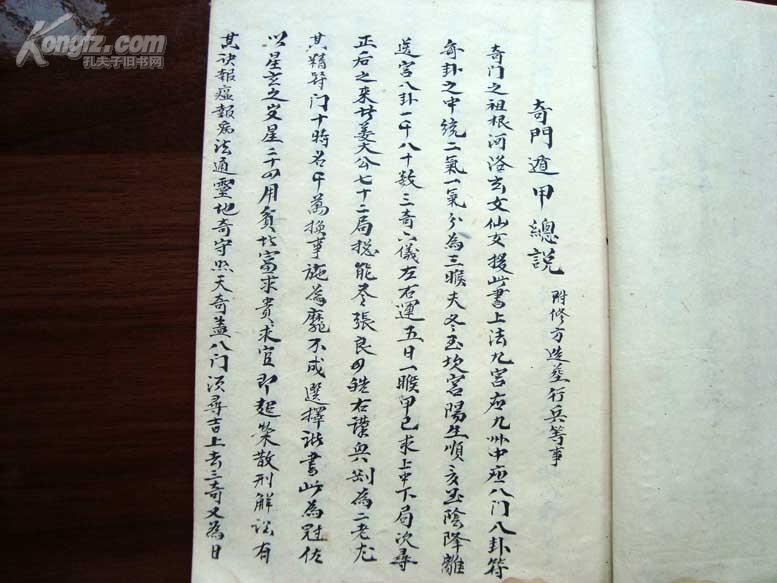 Kongfz.com
孔夫子旧书网
奇門遁甲總説 附修方造塟行兵等事
奇门之祖根河洛玄女仙女授此書上法九宫应九州中应八门八卦符
奇卦之中統二氣一氣分為三𠊱夫冬至坎宫陽生順夏至陰降離
逆宮八卦一千八十数三奇六儀左右運五日一𠊱甲己求上中下局次尋
正后之来廿姜太公七十二局揔能尽張良四皓右漢興刘為二老尤
其精符门十時名千萬揆事施為靡不成選擇諸書此为冠佐
以星玄之歩星二十四用貧求富求貴求官即起禁散刑解訟有
其訣報瘟報病法通靈地奇守照天奇盖八门須尋吉上去三奇又為日